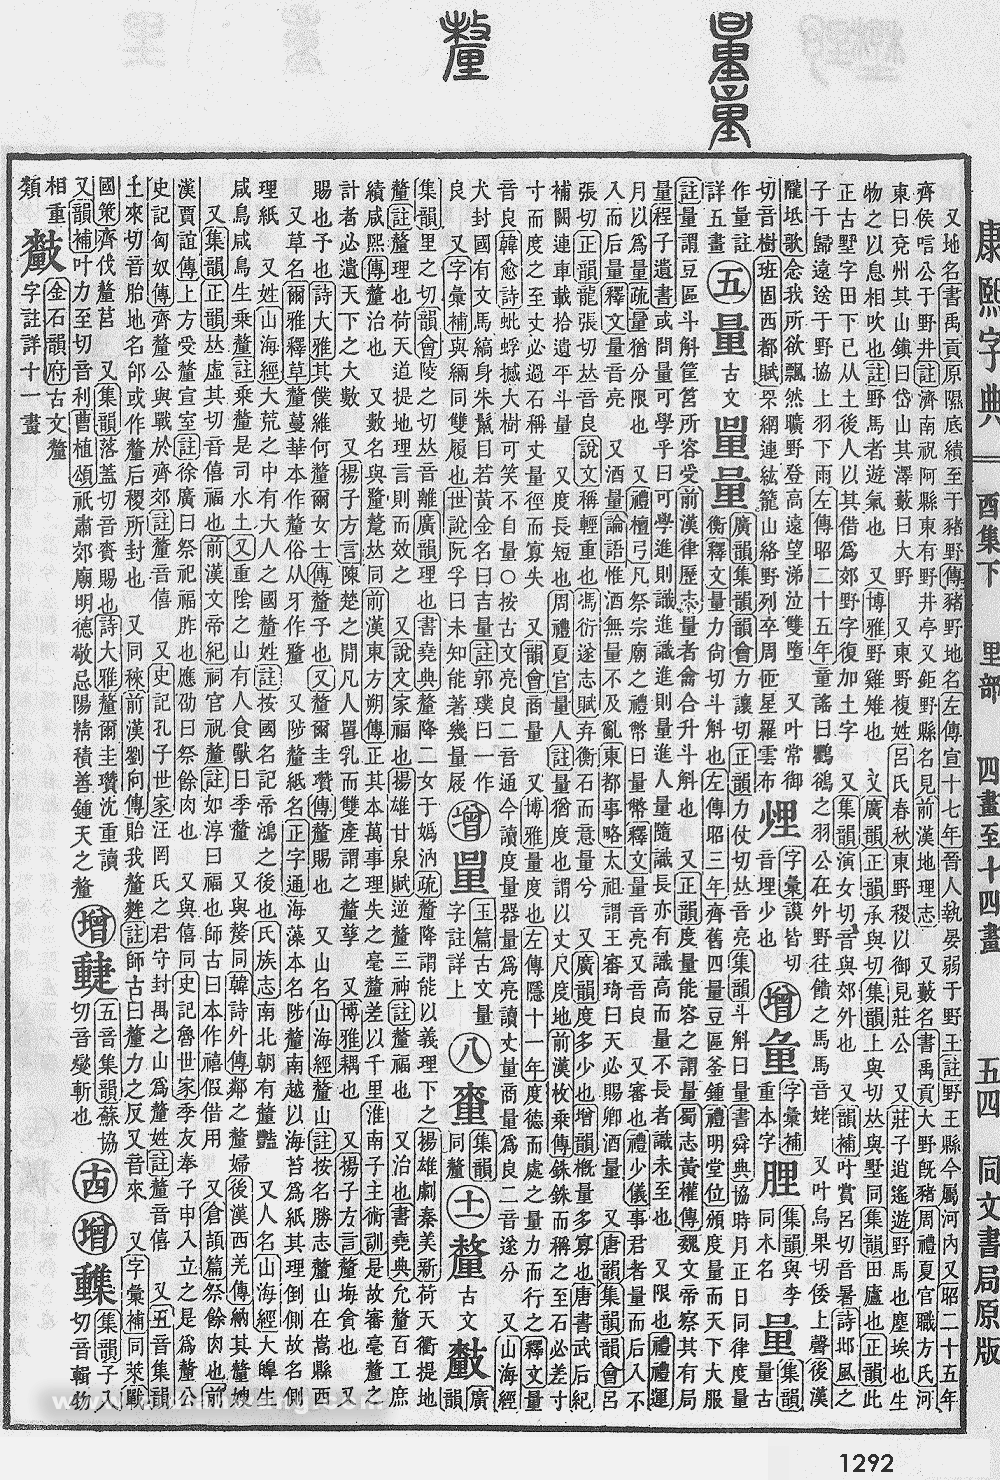 康熙字典 酉集下 里部 四畫至十四畫 五四 同文書局原版
又地名書禹貢原隰底績至于豬野傳豬野地名左傳宣十七年晉人執晏弱于野王註野王縣今屬河內又昭二十五年
齊侯唁公于野井註濟南祝阿縣東有野井亭又鉅野縣名見前漢地理志 又藪名書禹貢大野旣豬周禮夏官職方氏河
東曰兗州其山鎮曰岱山其澤藪曰大野 又東野複姓呂氏春秋東野稷以御見莊公 又莊子逍遙遊野馬也塵埃也生
物之以息相吹也註野馬者遊氣也 又博雅野雞雉也 又廣韻正韻承與切集韻上與切𠀤與墅同集韻田廬也正韻此
正古墅字田下已从土後人以其借爲郊野字復加土字 又集韻演女切音與郊外也 又韻補叶賞呂切音暑詩邶風之
子于歸遠送于野協上羽下雨左傳昭二十五年童謠曰鸜鵒之羽公在外野往饋之馬馬音姥 又叶烏果切倭上聲後漢
隴坻歌念我所欲飄然曠野登高遠望涕泣雙墮 又叶常御
切音樹班固西都賦罘網連紘籠山絡野列卒周匝星羅雲布
字彙謨皆切音埋少也 增 字彙補重本字 集韻與李同木名 量 集韻量古
作量註詳五畫
五 量 古文 廣韻集韻韻會力讓切正韻力仗切𠀤音亮集韻斗斛曰量書舜典協時月正日同律度量
衡釋文量力尙切斗斛也左傳昭三年齊舊四量豆區釜鍾禮明堂位頒度量而天下大服
註量謂豆區斗斛筐筥所容受前漢律歷志量者龠合升斗斛也 又正韻度量能容之謂量蜀志黃權傳魏文帝察其有局
量程子遺書或問量可學乎曰可學進則識進識進則量進人量隨識長亦有識高而量不長者識未至也 又限也禮禮運
月以爲量疏量猶分限也 又禮檀弓凡祭宗廟之禮幣曰量幣釋文量音亮又音良 又審也禮少儀事君者量而后入不
入而后量釋文量音亮 又酒量論語惟酒無量不及亂東都事略太祖謂王審琦曰天必賜卿酒量 又唐韻集韻韻會呂
張切正韻龍張切𠀤音良說文稱輕重也馮衍遂志賦弃衡石而意量兮 又廣韻度多少也增韻槪量多寡也唐書武后紀
補闕連車載拾遺平斗量 又度長短也周禮夏官量人註量猶度也謂以丈尺度地前漢枚乘傳銖銖而稱之至石必差寸
寸而度之至丈必過石稱丈量徑而寡失 又韻會商量 又博雅量度也左傳隱十一年度德而處之量力而行之釋文量
音良韓愈詩蚍蜉撼大樹可笑不自量○按古文亮良二音通今讀度量器量爲亮讀丈量商量爲良二音遂分 又山海經
犬封國有文馬縞身朱鬣目若黃金名曰吉量註郭璞曰一作
良 又字彙補與緉同雙履也世說阮孚曰未知能著幾量屐
增 玉篇古文量字註詳上 八 集韻同釐 十一 釐 古文 廣韻
集韻里之切韻會陵之切𠀤音離廣韻理也書堯典釐降二女于嬀汭疏釐降謂能以義理下之揚雄劇秦美新荷天衢提地
釐註釐理也荷天道提地理言則而效之 又說文家福也揚雄甘泉賦逆釐三神註釐福也 又治也書堯典允釐百工庶
績咸熙傳釐治也 又數名與氂釐𠀤同前漢東方朔傳正其本萬事理失之毫釐差以千里淮南子主術訓是故審毫釐之
計者必遺天下之大數 又揚子方言陳楚之閒凡人嘼乳而雙產謂之釐孳 又博雅耦也 又揚子方言釐埓貪也 又
賜也予也詩大雅其僕維何釐爾女士傳釐予也又釐爾圭瓚傳釐賜也 又山名山海經釐山註按名勝志釐山在嵩縣西
又草名爾雅釋草釐蔓華本作釐俗从牙作釐 又陟釐紙名正字通海藻本名陟釐南越以海苔爲紙其理倒側故名側
理紙 又姓山海經大荒之中有大人之國釐姓註按國名記帝鴻之後也氏族志南北朝有釐豔 又人名山海經大皥生
咸鳥咸鳥生乘釐註乘釐是司水土又重陰之山有人食獸曰季釐 又與嫠同韓詩外傳鄰之釐婦後漢西羌傳納其釐嫂
又集韻正韻𠀤虛其切音僖福也前漢文帝紀祠官祝釐註如淳曰福也師古曰本作禧假借用 又倉頡篇祭餘肉也前
漢賈誼傳上方受釐宣室註徐廣曰祭祀福胙也應劭曰祭餘肉也 又與僖同史記魯世家季友奉子申入立之是爲釐公
史記匈奴傳齊釐公與戰於齊郊註釐音僖 又史記孔子世家汪罔氏之君守封禺之山爲釐姓註釐音僖 又五音集韻
土來切音胎地名郃或作釐后稷所封也 又同秾前漢劉向傳飴我釐麰註師古曰釐力之反又音來 又字彙補同萊歐
國策齊伐釐莒 又集韻落蓋切音賚賜也詩大雅釐爾圭瓚沈重讀
又韻補叶力至切音利曹植頌祇肅郊廟明德敬忌陽精積善鍾天之釐
增 五音集韻蘇協切音燮斬也 十四 增 集韻子入切音輯物
相重 金石韻府古文釐
類 字註詳十一畫
1292